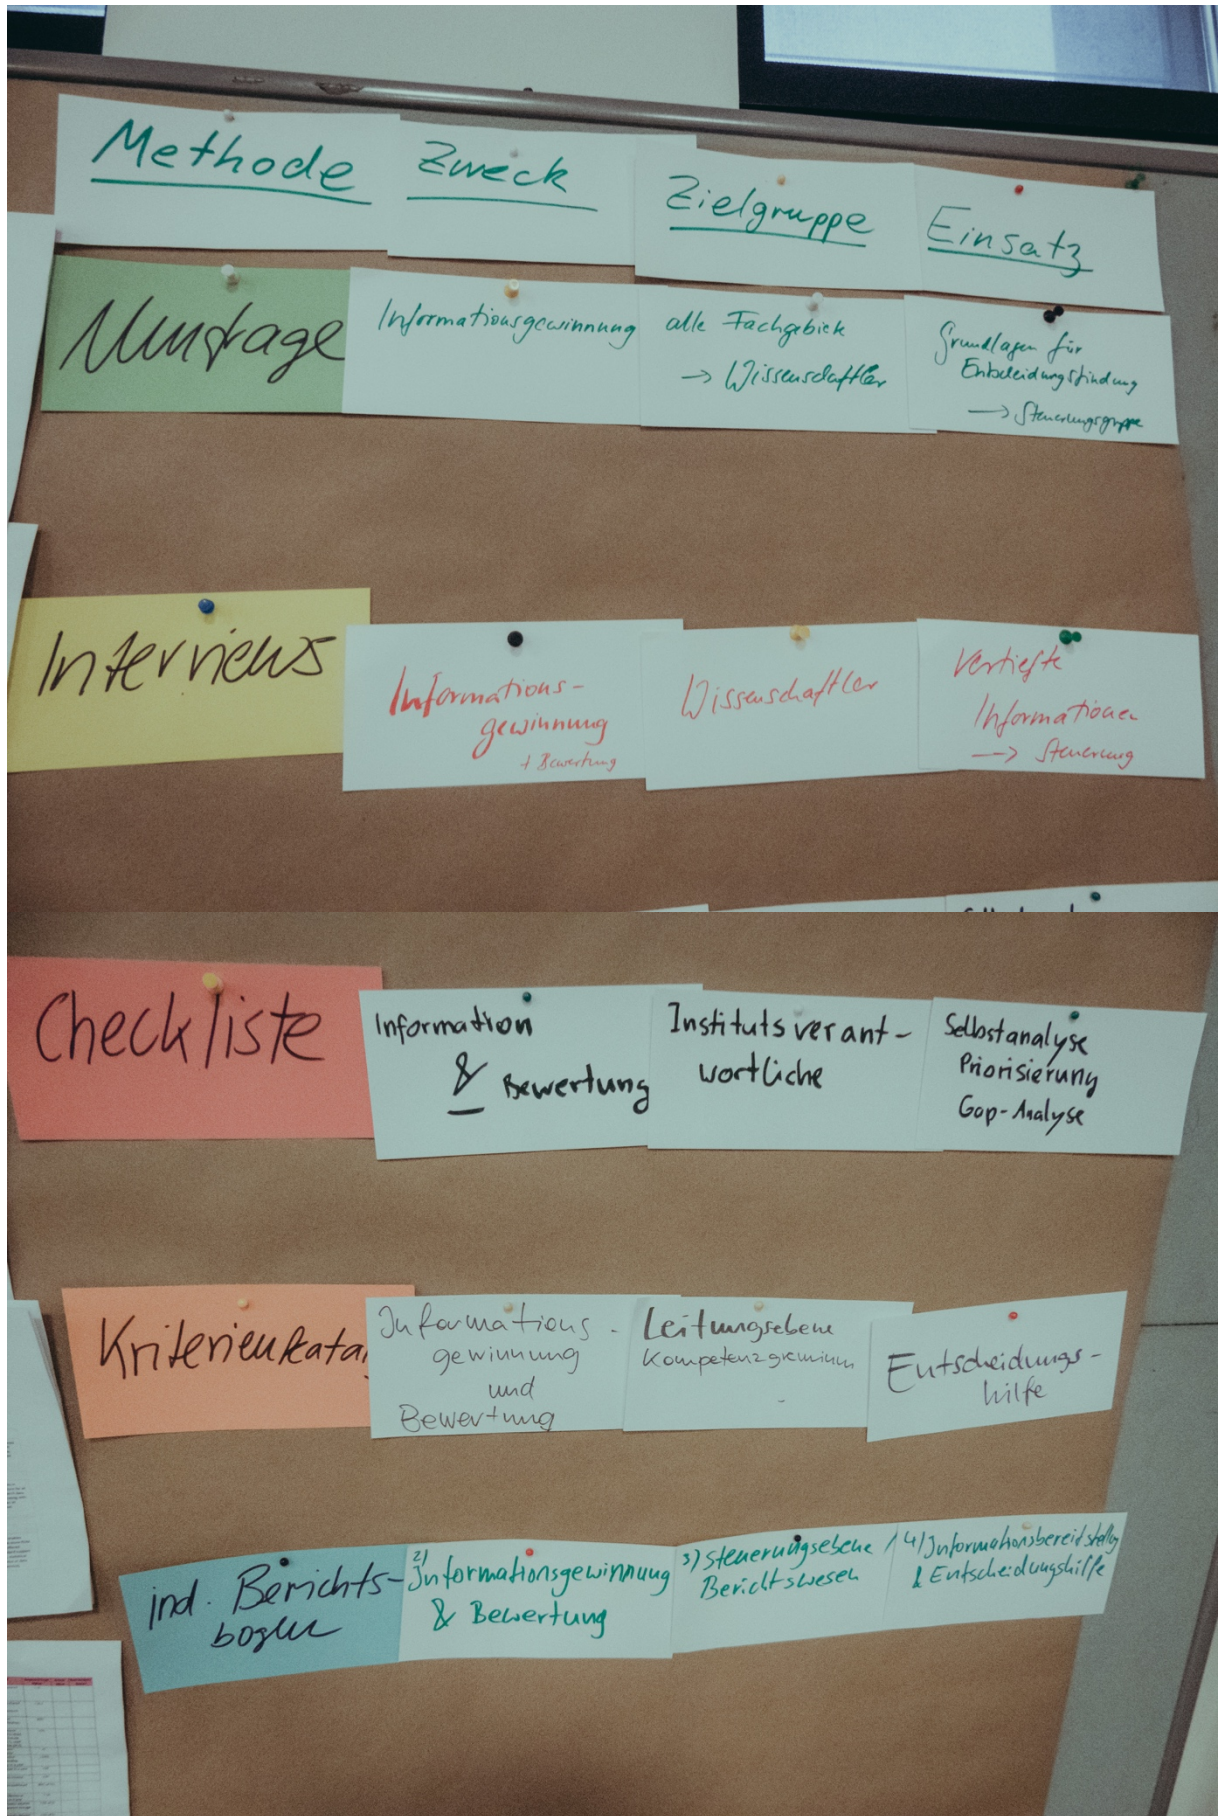 Methode
Zweck
Zielgruppe
Einsatz
Umfrage
Informationsgewinnung
alle Fachgebiete
→ Wissenschaftler
Grundlagen für
Entscheidungsfindung
→ Steuerungsgruppe
Interviews
Informations-
gewinnung
+ Bewertung
Wissenschaftler
Vertiefte
Informationen
→ Steuerung
Checkliste
Information
& Bewertung
Institutsverant-
wortliche
Selbstanalyse
Priorisierung
Gap-Analyse
Kriterienkata
Informations-
gewinnung
und
Bewertung
Leitungsebene
Kompetenzgremium
Entscheidungs-
hilfe
ind. Berichts-
bogen
2)
Informationsgewinnung
& Bewertung
3) Steuerungsebene /
Berichtswesen
4) Informationsbereitstellg
& Entscheidungshilfe